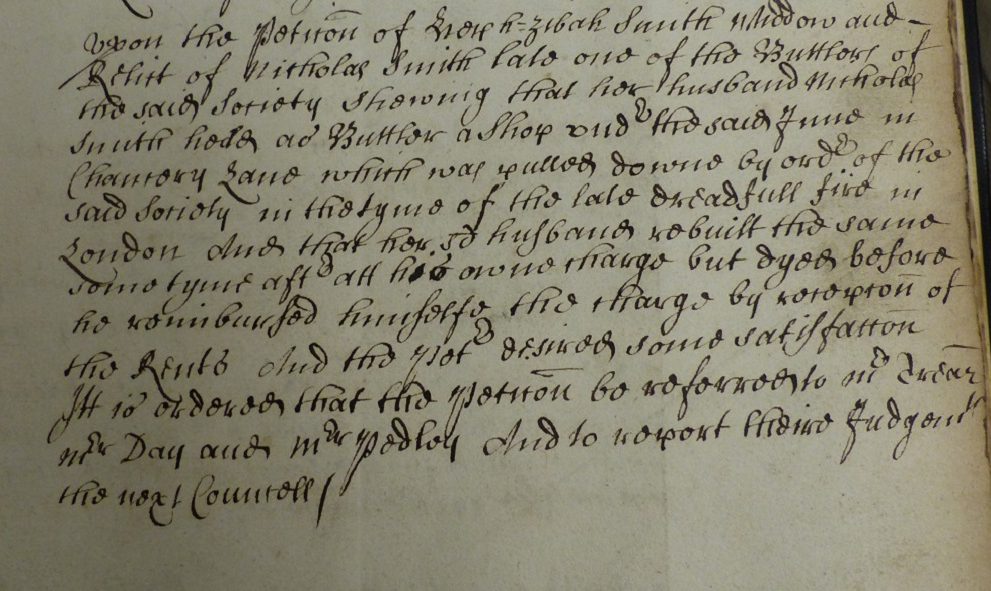 Vpon the Peticõn of Hephzibah Smith Widdow and
Relict of Nicholas Smith late one of the Buttlers of
the said Society Shewing that her husband Nicholas
Smith held as Buttler a Shop vndr the said Inne in
Chancery Lane which was pulled downe by ordr of the
said Society in the tyme of the late dreadfull fire in
London And that her sd husband rebuilt the same
some tyme aftr att his owne charge but dyed before
he reimbursed himselfe the charge by recepcõn of
the Rents And the Petr desired some satisfaccõn
Itt is ordered that the Peticõn be referred to mr Trẽar
mr Day and mr Pedley And to report theire Judgemt
the next Councell /